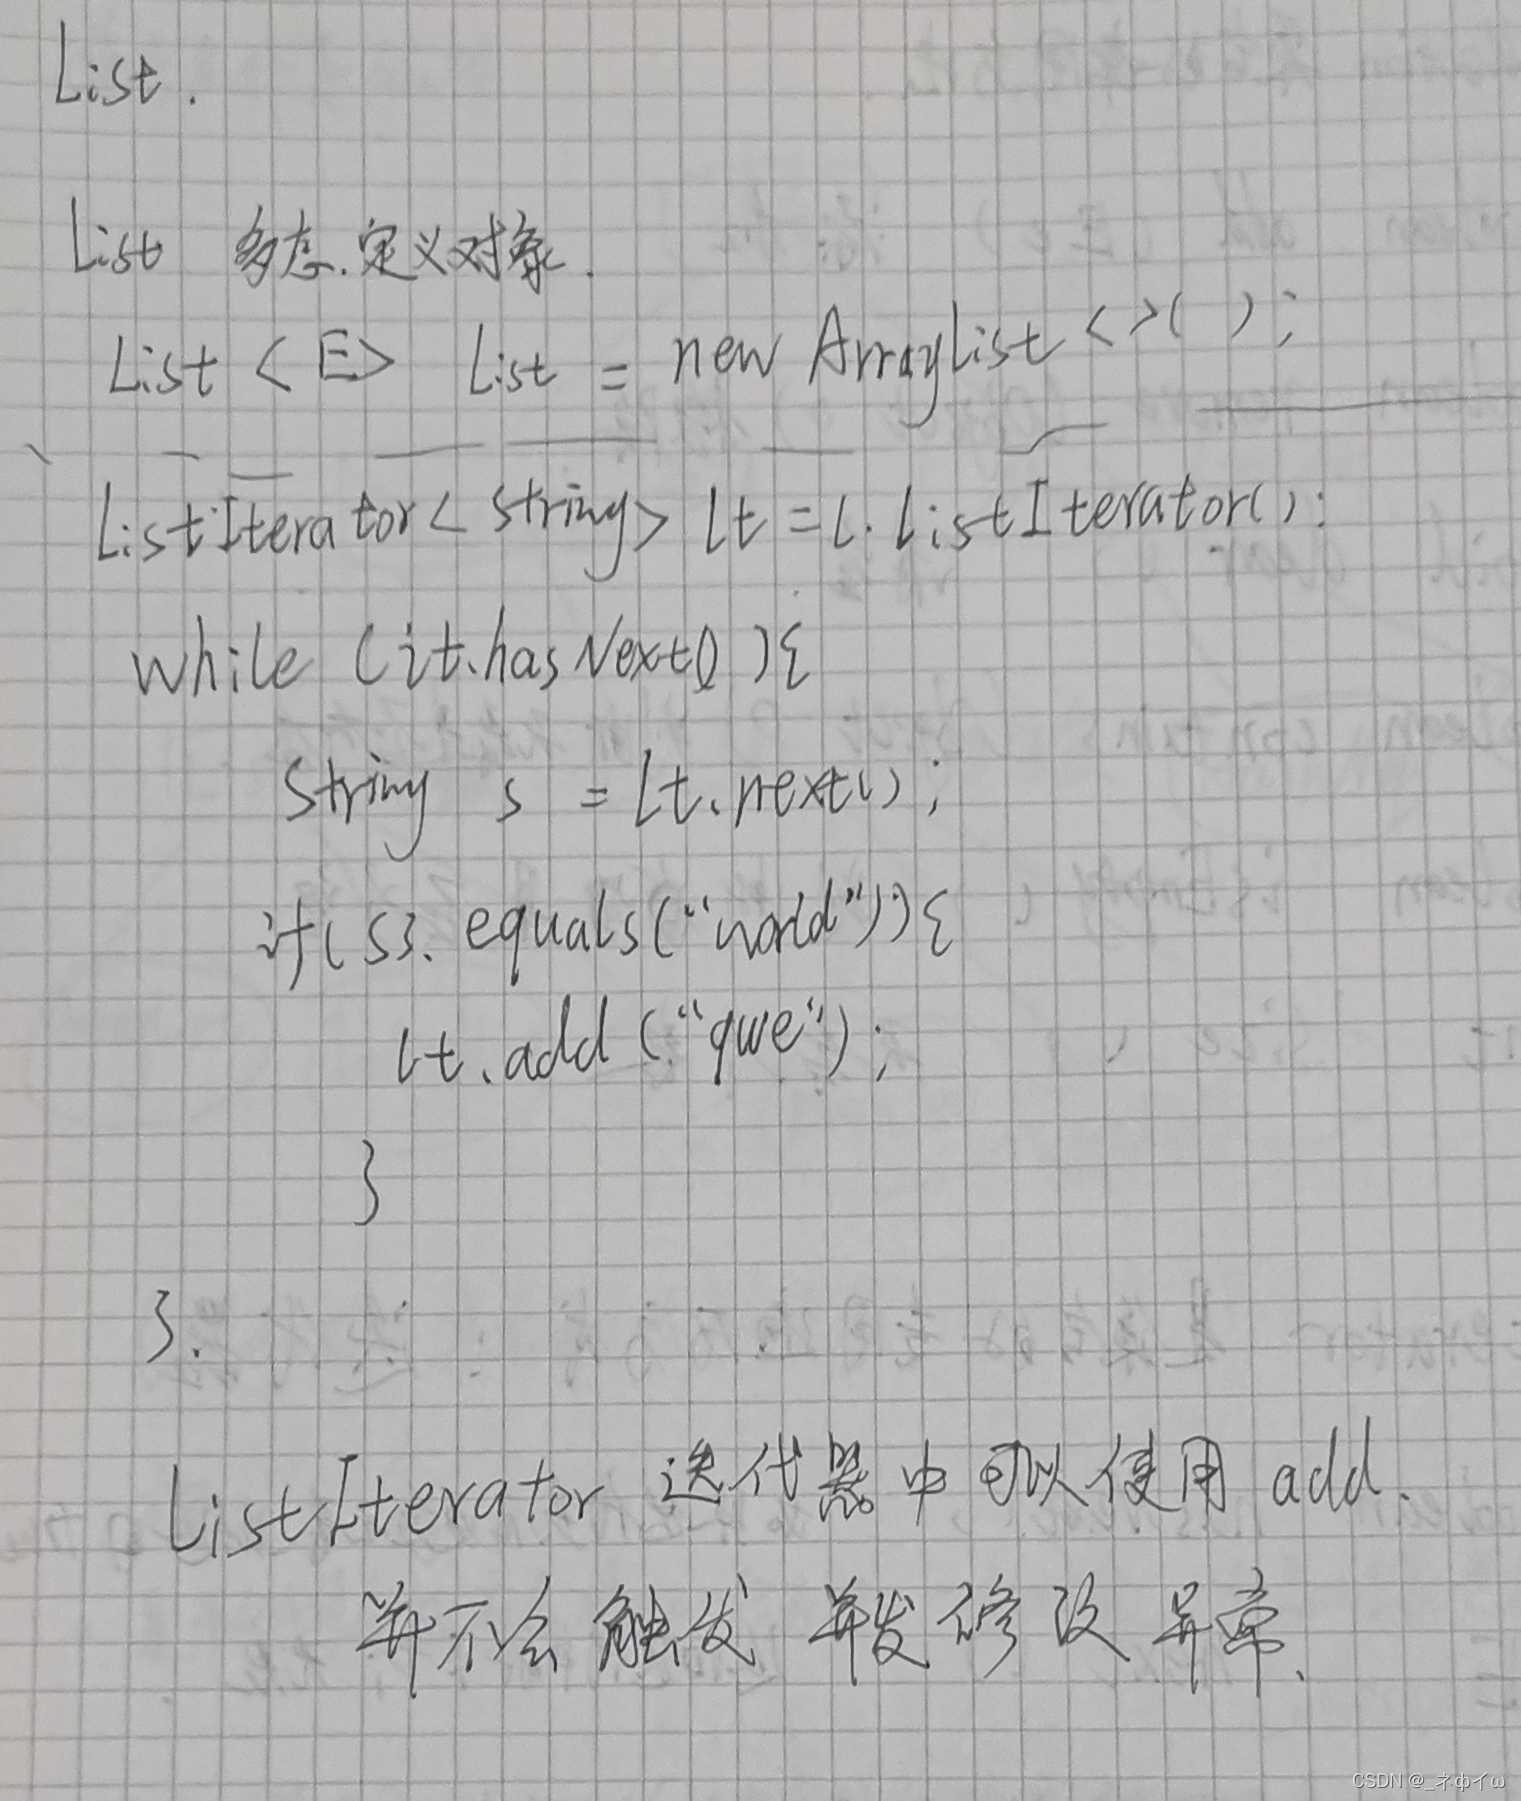 List.
List 多态.定义对象.
List <E> List = new ArrayList <>( );
ListIterator<String> lt = l.listIterator():
while (it.hasNext()){
String s = lt.next();
if(s3.equals("world")){
lt.add("qwe");
}
}.
ListIterator 迭代器中可以使用 add.
并不会触发 并发修改异常、
CSDN @_ネホイω